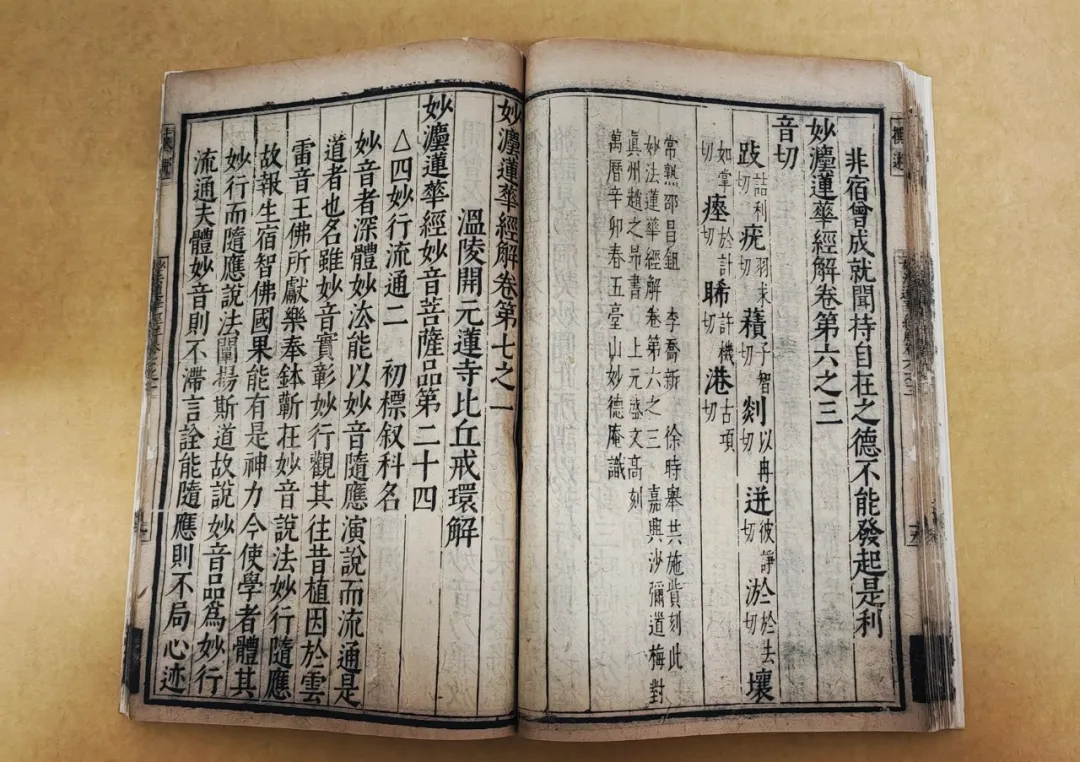 非宿曾成就聞持自在之德不能發起是利
妙灋蓮華經解卷第六之三
音切
跂詰利切 疣羽求切 𧂐子智切 剡以冉切 迸彼諍切 淤於去切 壤
如掌切 瘞於計切 睎許機切 港古項切
常熟邵昌鉏 李喬新 徐時舉共施貲刻此
妙法蓮華經解卷第六之三 嘉興沙彌道梅對
真州趙之昂書 上元盛文高刻
萬曆辛卯春五臺山妙德庵識
妙灋蓮華經解卷第七之一
溫陵開元蓮寺比丘戒環解
妙灋蓮華經妙音菩薩品第二十四
△四妙行流通二 初標叙科名
妙音者深體妙法能以妙音隨應演說而流通是
道者也名雖妙音實彰妙行觀其往昔植因於雲
雷音王佛所獻樂奉鉢蘄在妙音說法妙行隨應
故報生宿智佛國果能有是神力今使學者體其
妙行而隨應說法闡揚斯道故說妙音品為妙行
流通夫體妙音則不滯言詮能隨應則不局心迹